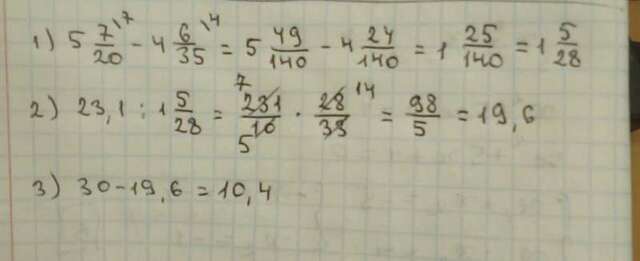 1) 5 7/20 \7 - 4 6/35 \4 = 5 49/140 - 4 24/140 = 1 25/140 = 1 5/28
2) 23,1 : 1 5/28 = 231/10 · 28/33 = 98/5 = 19,6
7 14
5
3) 30 - 19,6 = 10,4